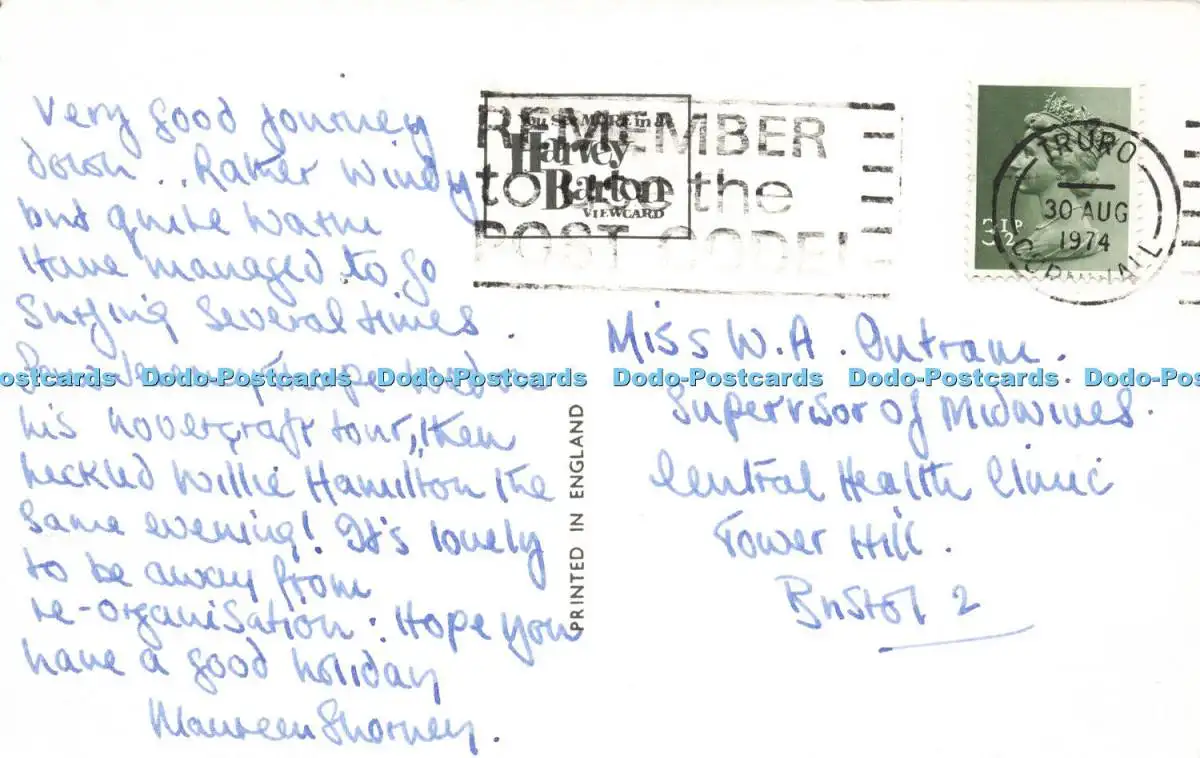 Very good journey
down .. Rather windy
but quite warm
Have managed to go
Surfing several times.
his hovercraft tour, then
heckled Willie Hamilton the
same evening! It's lovely
to be away from
re-organisation. Hope you
have a good holiday
Maureen Shorney.
REMEMBER
to use the
POST CODE!
You See MORE in a
Harvey
Barton
VIEWCARD
3½P
TRURO
30 AUG
1974
CORNWALL
Miss W.A. Outram.
Supervisor of Midwives.
Central Health Clinic
Tower Hill.
Bristol 2
PRINTED IN ENGLAND
Dodo-Postcards Dodo-Postcards Dodo-Postcards Dodo-Postcards